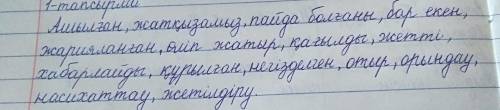 1-тапсырма
Ашылған, жатқызамыз, пайда болғаны, бар екен,
жарияланған, өліп жатыр, қағылды, жетті,
хабарлайды, құрылған, негізделген, отыр, орындау,
насихаттау, жетілдіру.